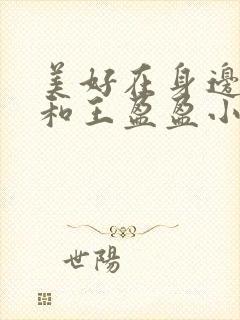 美好在身邊
和王盈盈小
世陽